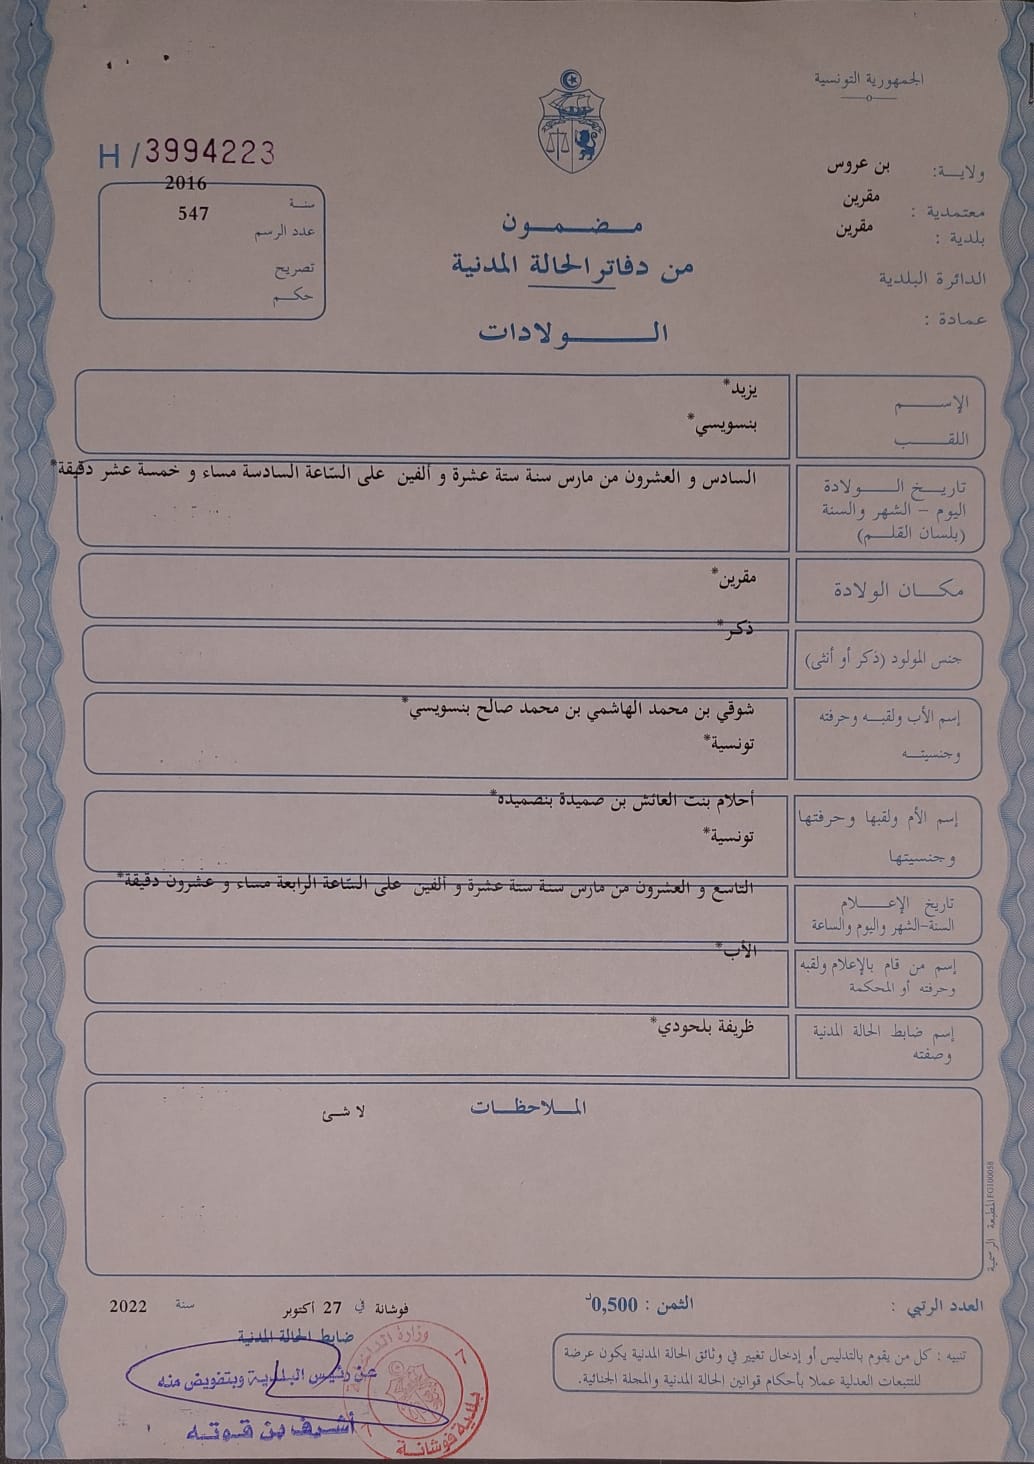 الجمهورية التونسية
H/3994223
ولايـــة: بن عروس
معتمدية : مقرين
بلدية : مقرين
الدائرة البلدية
عمادة :
سنـة 2016
عدد الرسم 547
تصريح
حكـم
مـضـمـون
من دفاتر الحالة المدنية
الـــولادات
الإســـم يزيد*
اللقـب بنسويسي*
تاريـخ الـــولادة السادس و العشرون من مارس سنة ستة عشرة و ألفين على السّاعة السادسة مساء و خمسة عشر دقيقة*
اليوم - الشهر والسنة
(بلسان القلـم)
مكـــان الولادة مقرين*
جنس المولود (ذكر أو أنثى) ذكر*
إسم الأب ولقبـه وحرفته شوقي بن محمد الهاشمي بن محمد صالح بنسويسي*
وجنسيتـــه تونسية*
إسم الأم ولقبها وحرفتها أحلام بنت العائش بن صميدة بنصميده*
وجنسيتها تونسية*
تاريخ الإعـــلام التاسع و العشرون من مارس سنة ستة عشرة و ألفين على السّاعة الرابعة مساء و عشرون دقيقة*
السنة-الشهر واليوم والساعة
إسم من قام بالإعلام ولقبه الأب*
وحرفته أو المحكمة
إسم ضابط الحالة المدنية ظريفة بلحودي*
وصفته
المـلاحظـات
لا شئ
المطبعة الرسمية FG100058
العدد الرتبي :
الثمن : 0,500د
فوشانة في 27 أكتوبر سنة 2022
ضابط الحالة المدنية
عن رئيس البلدية وبتفويض منه
أشرف بن قوته
وزارة
بلدية فوشانة
تنبيه : كل من يقوم بالتدليس أو إدخال تغيير في وثائق الحالة المدنية يكون عرضة
للتتبعات العدلية عملا بأحكام قوانين الحالة المدنية والمجلة الجنائية.